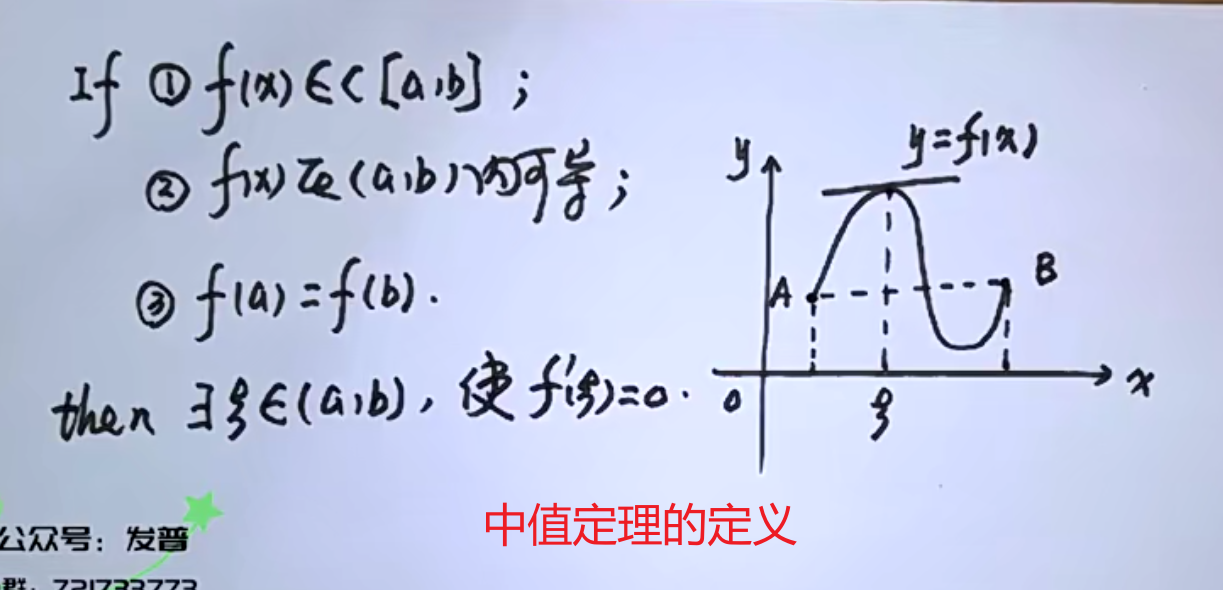 If ① f(x)∈C[a,b];
② f(x)在(a,b)内可导;
③ f(a)=f(b).
then ∃ξ∈(a,b),使f'(ξ)=0.
y
y=f(x)
A
B
0
ξ
x
中值定理的定义
公众号：发普
群：721733773